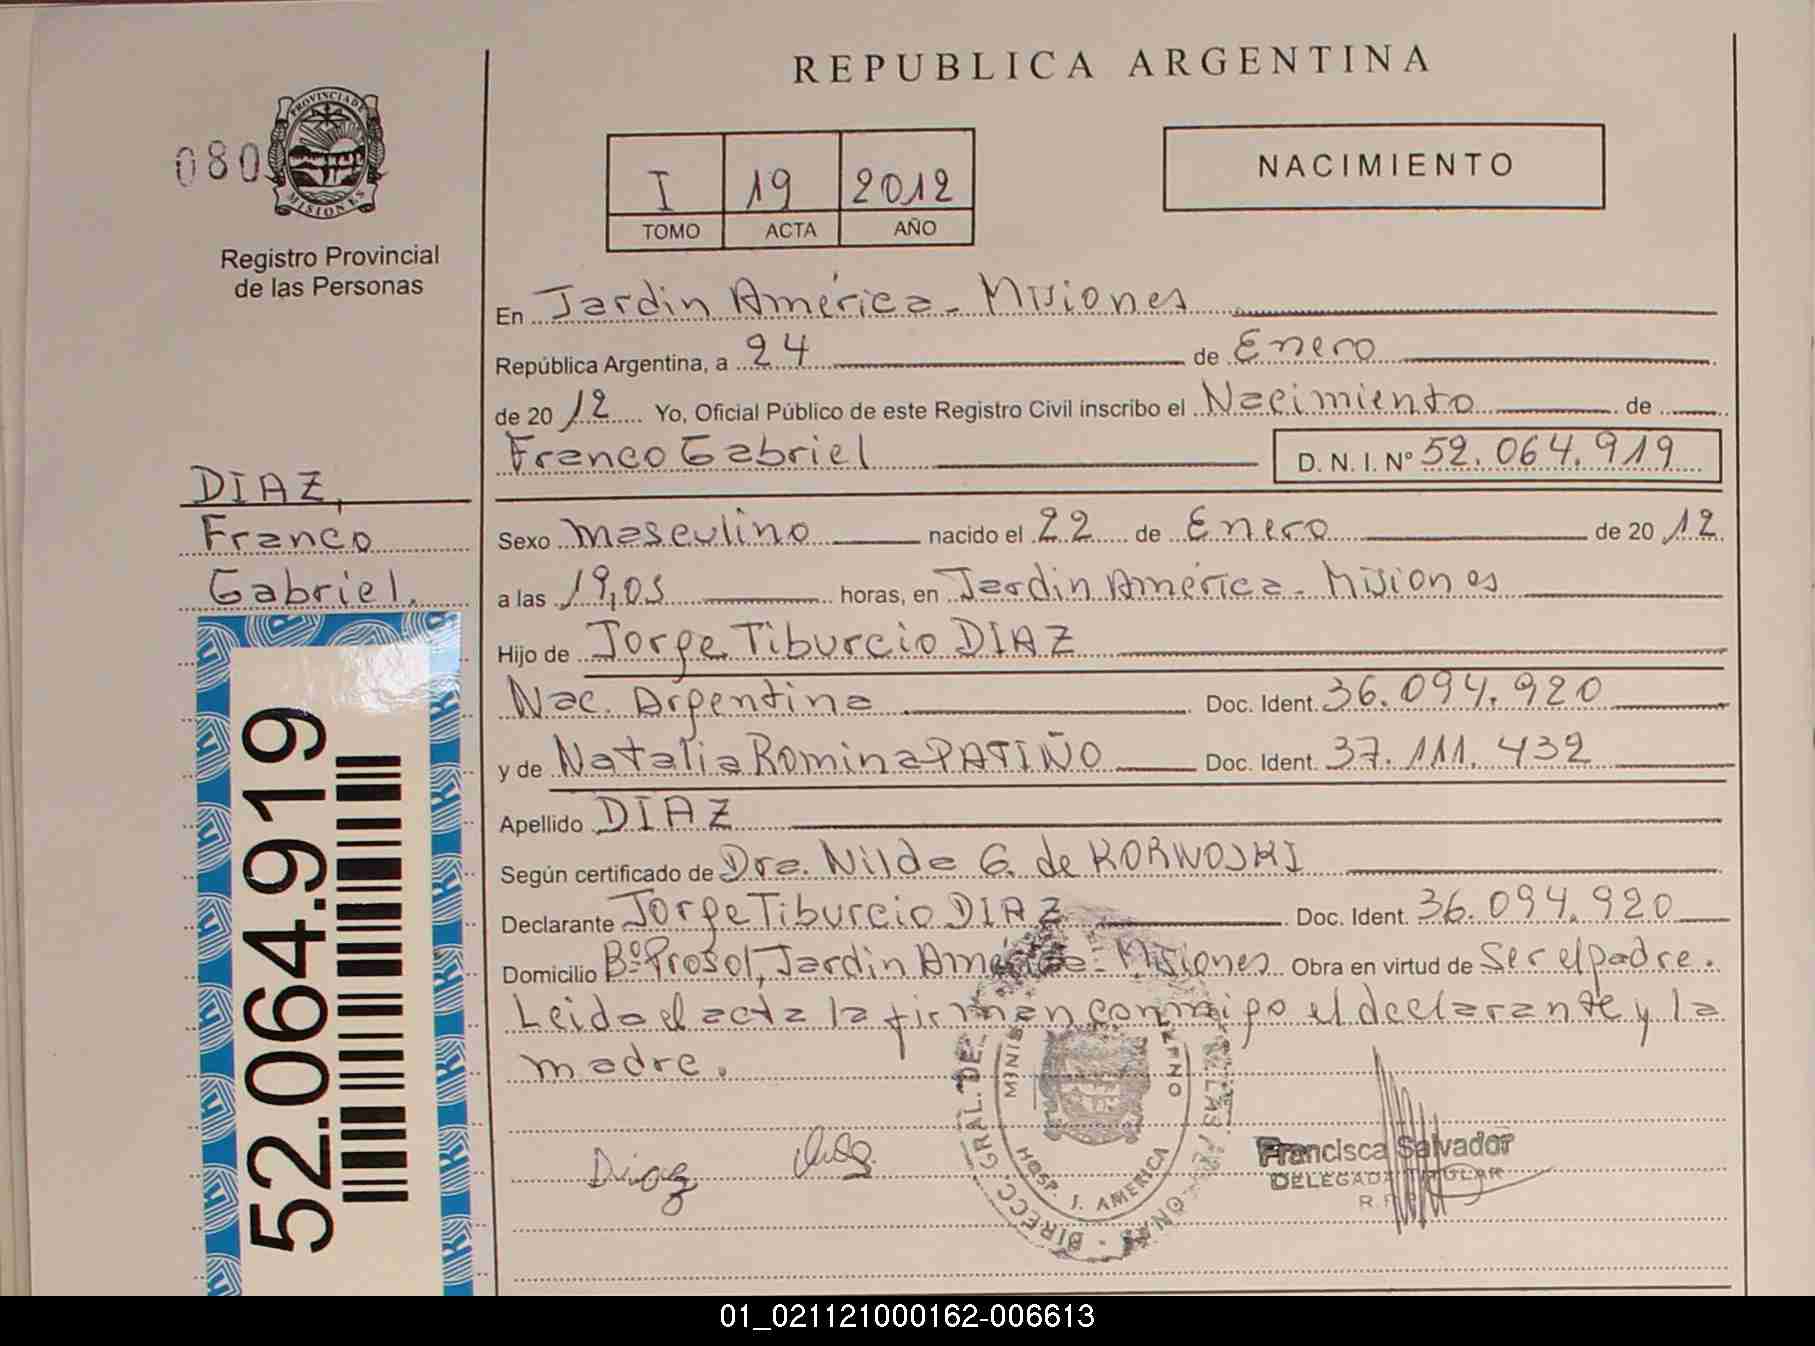 REPUBLICA ARGENTINA
080
PROVINCIA DE
MISIONES
Registro Provincial
de las Personas
I 19 2012
TOMO ACTA AÑO
NACIMIENTO
En Jardin América - Misiones
República Argentina, a 24 de Enero
de 2012 Yo, Oficial Público de este Registro Civil inscribo el Nacimiento de
Franco Gabriel D. N. I. Nº 52.064.919
DIAZ,
Franco
Gabriel.
Sexo masculino nacido el 22 de Enero de 2012
a las 19,05 horas, en Jardin América - Misiones
Hijo de Jorge Tiburcio DIAZ
Nac. Argentina Doc. Ident. 36.094.920
y de Natalia Romina PATIÑO Doc. Ident. 37.111.432
Apellido DIAZ
Según certificado de Dra. Nilda G. de KORNOSKI
Declarante Jorge Tiburcio DIAZ Doc. Ident. 36.094.920
Domicilio Bº Prosol, Jardin América - Misiones Obra en virtud de Ser el padre.
Leida el acta la firman conmigo el declarante y la
madre.
52.064.919
Diaz
DIRECC. GRAL. DE
HOSP. J. AMERICA
Francisca Salvador
DELEGADA TITULAR
01_021121000162-006613